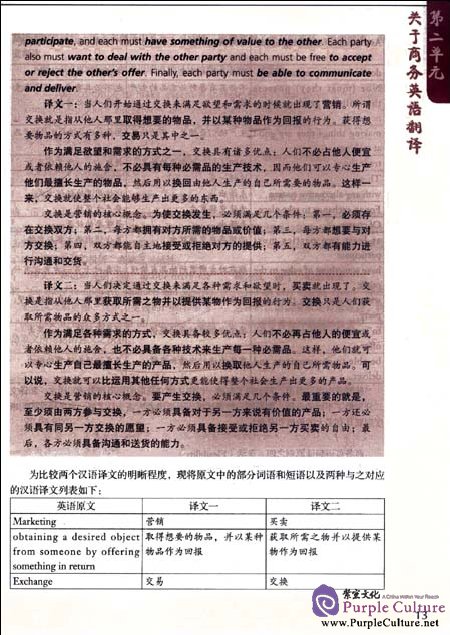 第二单元
关于商务英语翻译
participate, and each must have something of value to the other. Each party
also must want to deal with the other party and each must be free to accept
or reject the other's offer. Finally, each party must be able to communicate
and deliver.
译文一：当人们开始通过交换来满足欲望和需求的时候就出现了营销。所谓
交换就是指从他人那里取得想要的物品，并以某种物品作为回报的行为。获得想
要物品的方式有多种，交易只是其中之一。
作为满足欲望和需求的方式之一，交换具有诸多优点：人们不必占他人便宜
或者依赖他人的施舍，不必具有每种必需品的生产技术，因而他们可以专心生产
他们最擅长生产的物品，然后用以换回由他人生产的自己所需要的物品。这样一
来，交换就使整个社会能够生产出更多的东西。
交换是营销的核心概念。为使交换发生，必须满足几个条件：第一，必须存
在交换双方；第二，每方都拥有对方所需的物品或价值；第三，每方都想要与对
方交换；第四，双方都能自主地接受或拒绝对方的提供；第五，双方都有能力进
行沟通和交货。
译文二：当人们决定通过交换来满足各种需求和欲望时，买卖就出现了。交
换是指从他人那里获取所需之物并以提供某物作为回报的行为。交换只是人们获
取所需物品的众多方式之一。
作为满足各种需求的方式，交换具备较多优点：人们不必再占他人的便宜或
者依赖他人的施舍，也不必具备各种技术来生产每一种必需品。这样，他们就可
以专心生产自己最擅长生产的产品，然后用以换取他人生产的自己所需物品。可
以说，交换就可以比运用其他任何方式更能使得整个社会生产出更多的产品。
交换是营销的核心概念。要产生交换，必须满足几个条件。最重要的就是，
至少须由两方参与交换，一方必须具备对于另一方来说有价值的产品；一方还必
须具有同另一方交换的愿望；一方必须具备接受或拒绝另一方买卖的自由；最
后，各方必须具备沟通和送货的能力。
为比较两个汉语译文的明晰程度，现将原文中的部分词语和短语以及两种与之对应
的汉语译文列表如下：
英语原文 译文一 译文二
Marketing 营销 买卖
obtaining a desired object 取得想要的物品，并以某种 获取所需之物并以提供某
from someone by offering 物品作为回报 物作为回报
something in return
Exchange 交易 交换
紫宝文化 A China Within Your Reach
13
Purple Culture
www.PurpleCulture.net